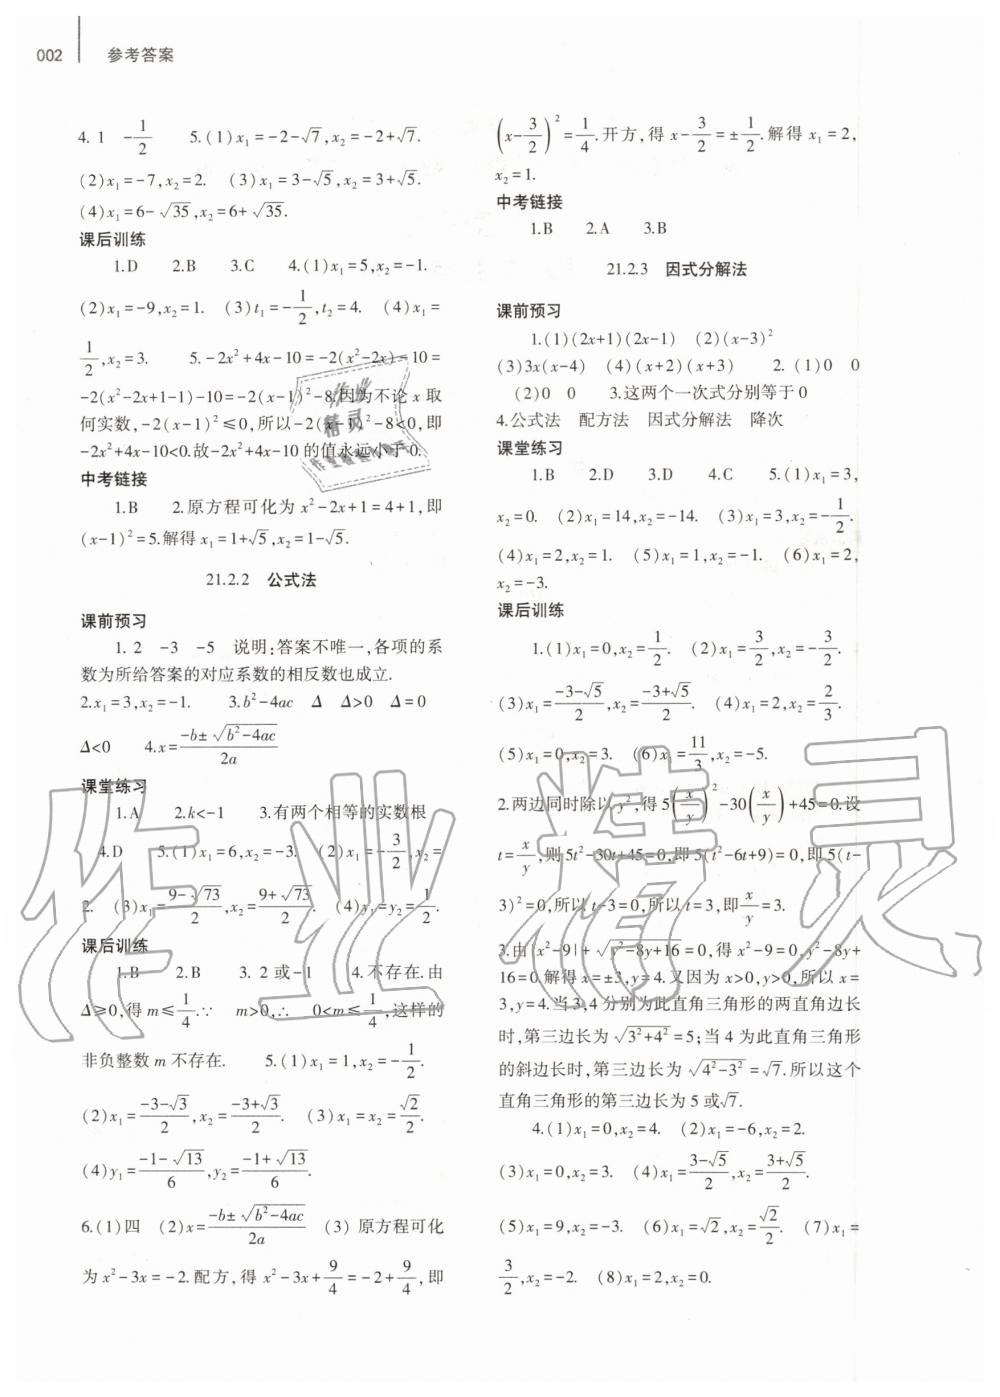 002 参考答案
4. 1 -1/2 5.(1)x₁=-2-√7,x₂=-2+√7.
(2)x₁=-7,x₂=2. (3)x₁=3-√5,x₂=3+√5.
(4)x₁=6-√35,x₂=6+√35.
课后训练
1.D 2.B 3.C 4.(1)x₁=5,x₂=-1.
(2)x₁=-9,x₂=1. (3)t₁=-1/2,t₂=4. (4)x₁=
1/2,x₂=3. 5.-2x²+4x-10=-2(x²-2x)-10=
-2(x²-2x+1-1)-10=-2(x-1)²-8,因为不论x取
何实数,-2(x-1)²≤0,所以-2(x-1)²-8<0,即
-2x²+4x-10<0.故-2x²+4x-10的值永远小于0.
中考链接
1.B 2.原方程可化为x²-2x+1=4+1,即
(x-1)²=5.解得x₁=1+√5,x₂=1-√5.
21.2.2 公式法
课前预习
1. 2 -3 -5 说明:答案不唯一,各项的系
数为所给答案的对应系数的相反数也成立.
2.x₁=3,x₂=-1. 3.b²-4ac Δ Δ>0 Δ=0
Δ<0 4.x=(-b±√(b²-4ac))/2a
课堂练习
1.A 2.k<-1 3.有两个相等的实数根
4.D 5.(1)x₁=6,x₂=-3. (2)x₁=-3/2,x₂=
2. (3)x₁=(9-√73)/2,x₂=(9+√73)/2. (4)y₁=y₂=1/2.
课后训练
1.B 2.B 3. 2或-1 4.不存在.由
Δ≥0,得m≤1/4.∵ m>0,∴ 0<m≤1/4,这样的
非负整数m不存在. 5.(1)x₁=1,x₂=-1/2.
(2)x₁=(-3-√3)/2,x₂=(-3+√3)/2. (3)x₁=x₂=√2/2.
(4)y₁=(-1-√13)/6,y₂=(-1+√13)/6.
6.(1)四 (2)x=(-b±√(b²-4ac))/2a (3)原方程可化
为x²-3x=-2.配方,得x²-3x+9/4=-2+9/4,即
(x-3/2)²=1/4.开方,得x-3/2=±1/2.解得x₁=2,
x₂=1.
中考链接
1.B 2.A 3.B
21.2.3 因式分解法
课前预习
1.(1)(2x+1)(2x-1) (2)(x-3)²
(3)3x(x-4) (4)(x+2)(x+3) 2. (1)0 0
(2)0 0 3.这两个一次式分别等于0
4.公式法 配方法 因式分解法 降次
课堂练习
1.B 2.D 3.D 4.C 5.(1)x₁=3,
x₂=0. (2)x₁=14,x₂=-14. (3)x₁=3,x₂=-1/2.
(4)x₁=2,x₂=1. (5)x₁=1,x₂=-1. (6)x₁=2,
x₂=-3.
课后训练
1.(1)x₁=0,x₂=1/2. (2)x₁=3/2,x₂=-3/2.
(3)x₁=(-3-√5)/2,x₂=(-3+√5)/2. (4)x₁=2,x₂=2/3.
(5)x₁=0,x₂=3. (6)x₁=11/3,x₂=-5.
2.两边同时除以y²,得5(x/y)²-30(x/y)+45=0.设
t=x/y,则5t²-30t+45=0,即5(t²-6t+9)=0,即5(t-
3)²=0,所以t-3=0,所以t=3,即x/y=3.
3.由|x²-9|+√(y²-8y+16)=0,得x²-9=0,y²-8y+
16=0.解得x=±3,y=4.又因为x>0,y>0,所以x=
3,y=4.当3,4分别为此直角三角形的两直角边长
时,第三边长为√(3²+4²)=5;当4为此直角三角形
的斜边长时,第三边长为√(4²-3²)=√7.所以这个
直角三角形的第三边长为5或√7.
4.(1)x₁=0,x₂=4. (2)x₁=-6,x₂=2.
(3)x₁=0,x₂=3. (4)x₁=(3-√5)/2,x₂=(3+√5)/2.
(5)x₁=9,x₂=-3. (6)x₁=√2,x₂=√2/2. (7)x₁=
3/2,x₂=-2. (8)x₁=2,x₂=0.
作业精灵
作业
精灵